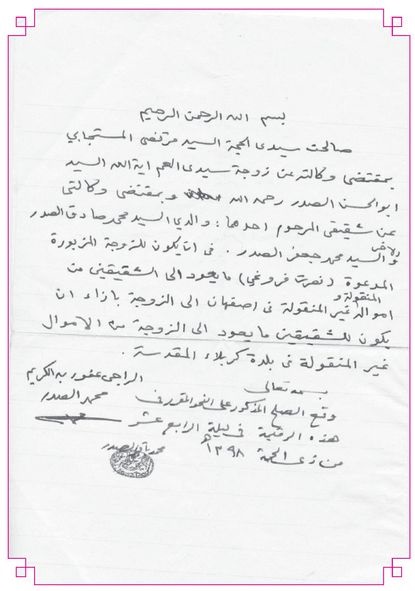 بسم الله الرحمن الرحيم
صالحت سيدي الحجة السيد مرتضى المستجابي
بمقتضى وكالته عن زوجة سيدي العم اية الله السيد
ابو الحسن الصدر رحمه الله وبمقتضى وكالتي
عن شقيقي المرحوم احدهما: والدي السيد محمد صادق الصدر
والآخر السيد محمد جعفر الصدر. في ان يكون للزوجة المزبورة
المدعوة (نصرت فروغي) ما يعود الى الشقيقين من
امواله المنقولة و غير المنقولة في اصفهان الى الزوجة بازاء ان
يكون للشقيقين ما يعود الى الزوجة من الاموال
غير المنقولة في بلدة كربلاء المقدسة.
الراجي عفو ربه الكريم
محمد الصدر
بسمه تعالى
وقع الصلح المذكور على النحو المقرر في
هذه الرقية في ليلة الرابع عشر
من ذي الحجة ١٣٩٨ هـ
محمد باقر الصدر